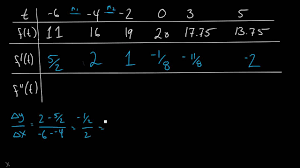 t -6 -4 -2 0 3 5
f(t) 11 16 19 20 17.75 13.75
f'(t) 5/2 2 1 -1/8 -11/8 -2
f''(t)
Δy/Δx = 2 - 5/2 / -6 - -4 = -1/2 / 2 =